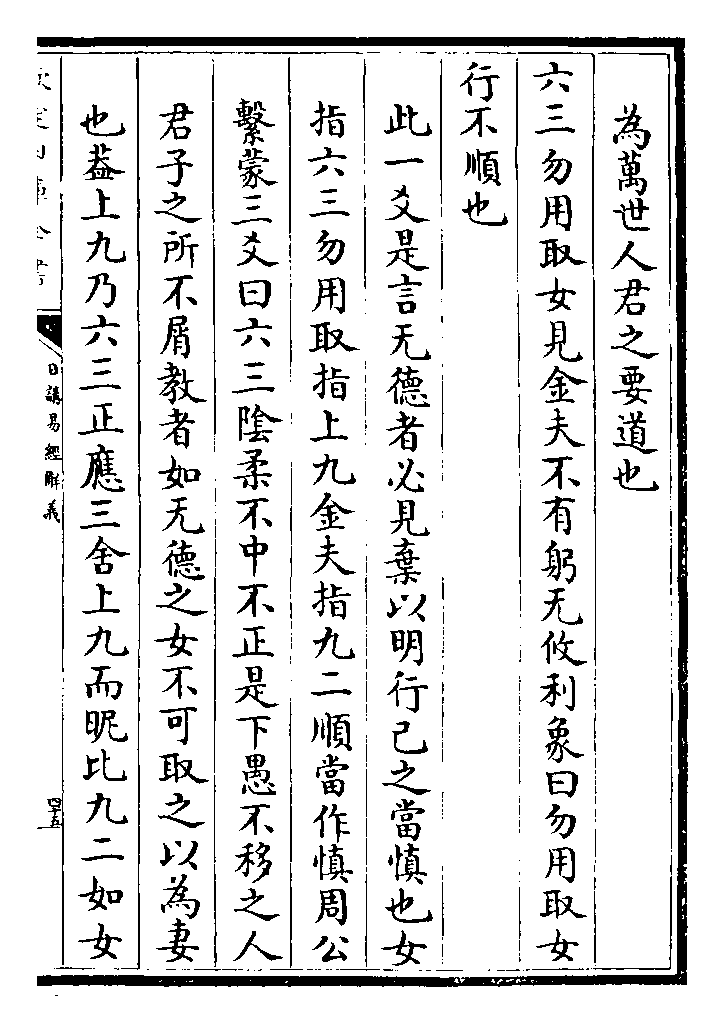 為萬世人君之要道也
六三勿用取女見金夫不有躬无攸利象曰勿用取女
行不順也
此一爻是言无德者必見棄以明行己之當慎也女
指六三勿用取指上九金夫指九二順當作慎周公
繫蒙三爻曰六三陰柔不中不正是下愚不移之人
君子之所不屑教者如无德之女不可取之以為妻
也葢上九乃六三正應三舍上九而昵比九二如女
欽定四庫全書
日講易經解義
四十五